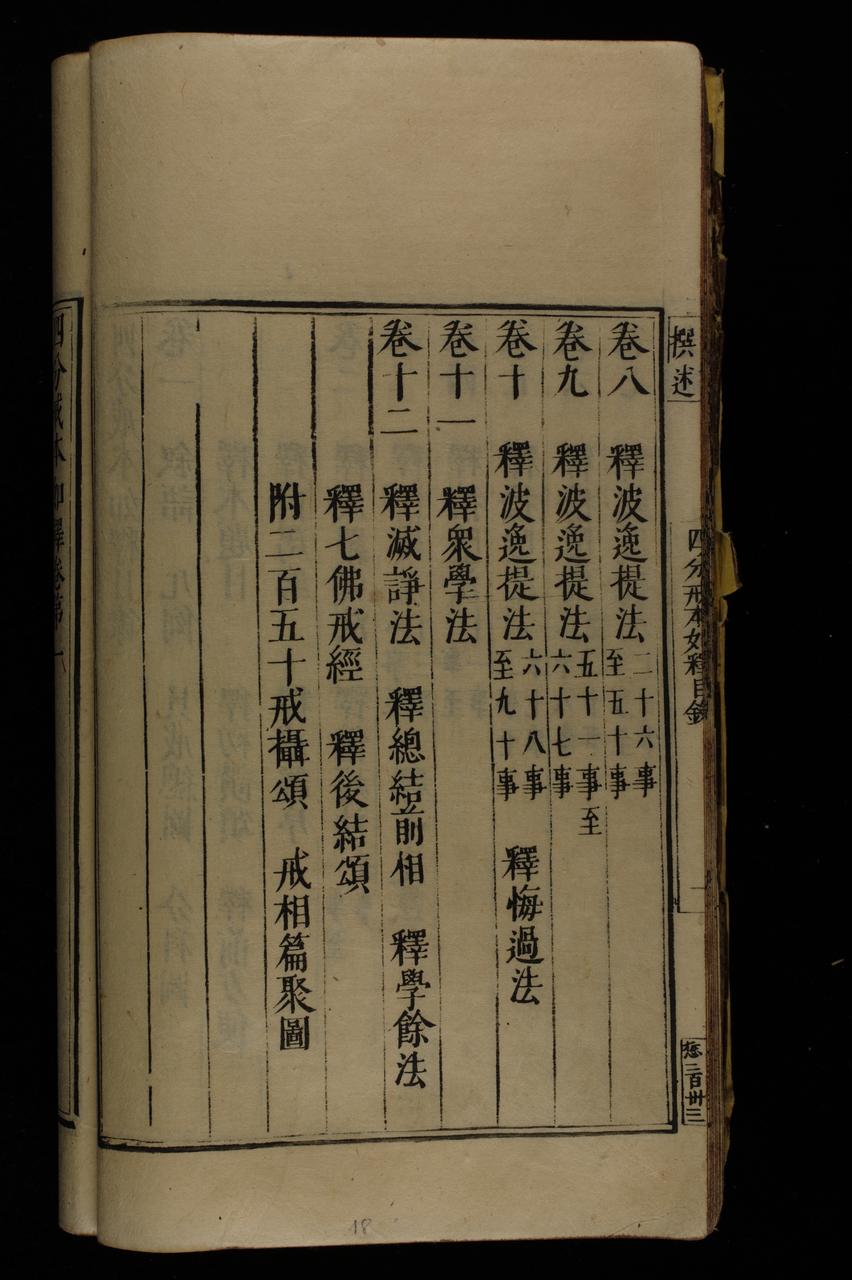 撰述
四分戒本如釋目錄
一
卷八 釋波逸提法 二十六事至五十事
卷九 釋波逸提法 五十一事至六十七事
卷十 釋波逸提法 六十八事至九十事 釋悔過法
卷十一 釋衆學法
卷十二 釋滅諍法 釋總結前相 釋學餘法
釋七佛戒經 釋後結頌
附二百五十戒攝頌 戒相篇聚圖
四分戒本如釋卷第一
18